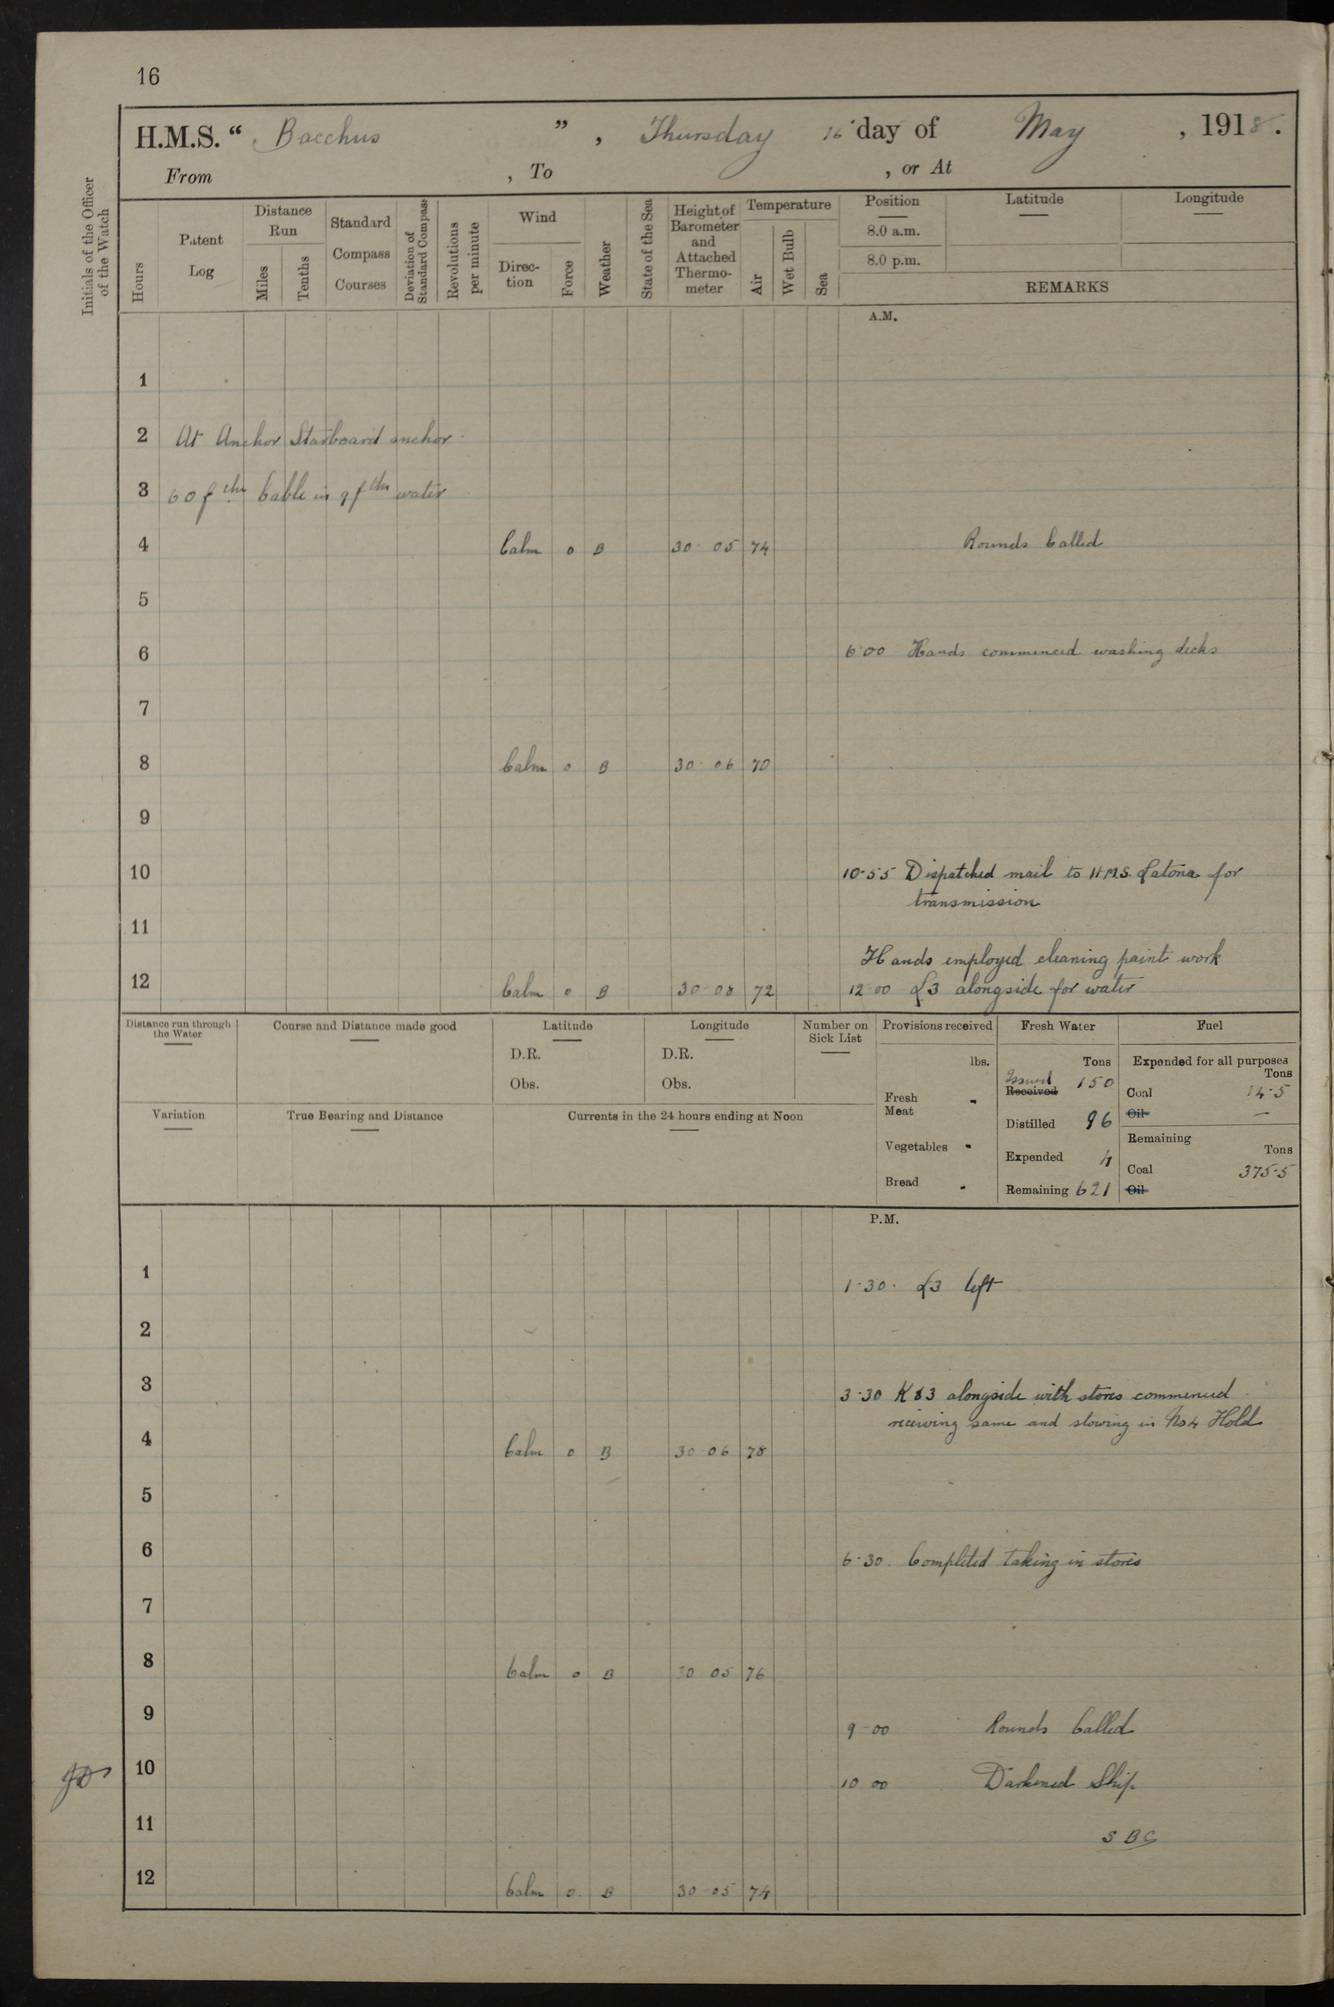 16
H.M.S. “ Bacchus ” , Thursday 16 day of May , 1918.
From , To , or At
Initials of the Officer of the Watch
Hours
Patent Log
Distance Run
Miles
Tenths
Standard Compass Courses
Deviation of Standard Compass
Revolutions per minute
Wind
Direction
Force
Weather
State of the Sea
Height of Barometer and Attached Thermometer
Temperature
Air
Wet Bulb
Sea
Position
8.0 a.m.
8.0 p.m.
Latitude
Longitude
REMARKS
A.M.
1
2 At Anchor Starboard anchor
3 60 fthm Cable in 9 fthm water
4 Calm 0 B 30 05 74 Rounds Called
5
6 6·00 Hands commenced washing decks
7
8 Calm 0 B 30 06 70
9
10 10-55 Dispatched mail to H.M.S. Latona for
transmission
11
Hands employed cleaning paint work
12 Calm 0 B 30-08 72 12 00 L3 alongside for water
Distance run through the Water
Course and Distance made good
Latitude
D.R.
Obs.
Longitude
D.R.
Obs.
Number on Sick List
Provisions received
lbs.
Fresh Meat -
Vegetables -
Bread -
Fresh Water
Tons
Issued
Received 150
Distilled 96
Expended 4
Remaining 621
Fuel
Expended for all purposes
Tons
Coal 14·5
Oil —
Remaining
Tons
Coal 375·5
Oil
Variation
True Bearing and Distance
Currents in the 24 hours ending at Noon
P.M.
1 1-30. L3 left
2
3 3-30 K83 alongside with stores commenced
receiving same and stowing in No4 Hold
4 Calm 0 B 30 06 78
5
6 6-30. Completed taking in stores
7
8 Calm 0 B 30 05 76
9 9-00 Rounds Called
10 10 00 Darkened Ship
11 SBC
12 Calm 0 B 30-05 74